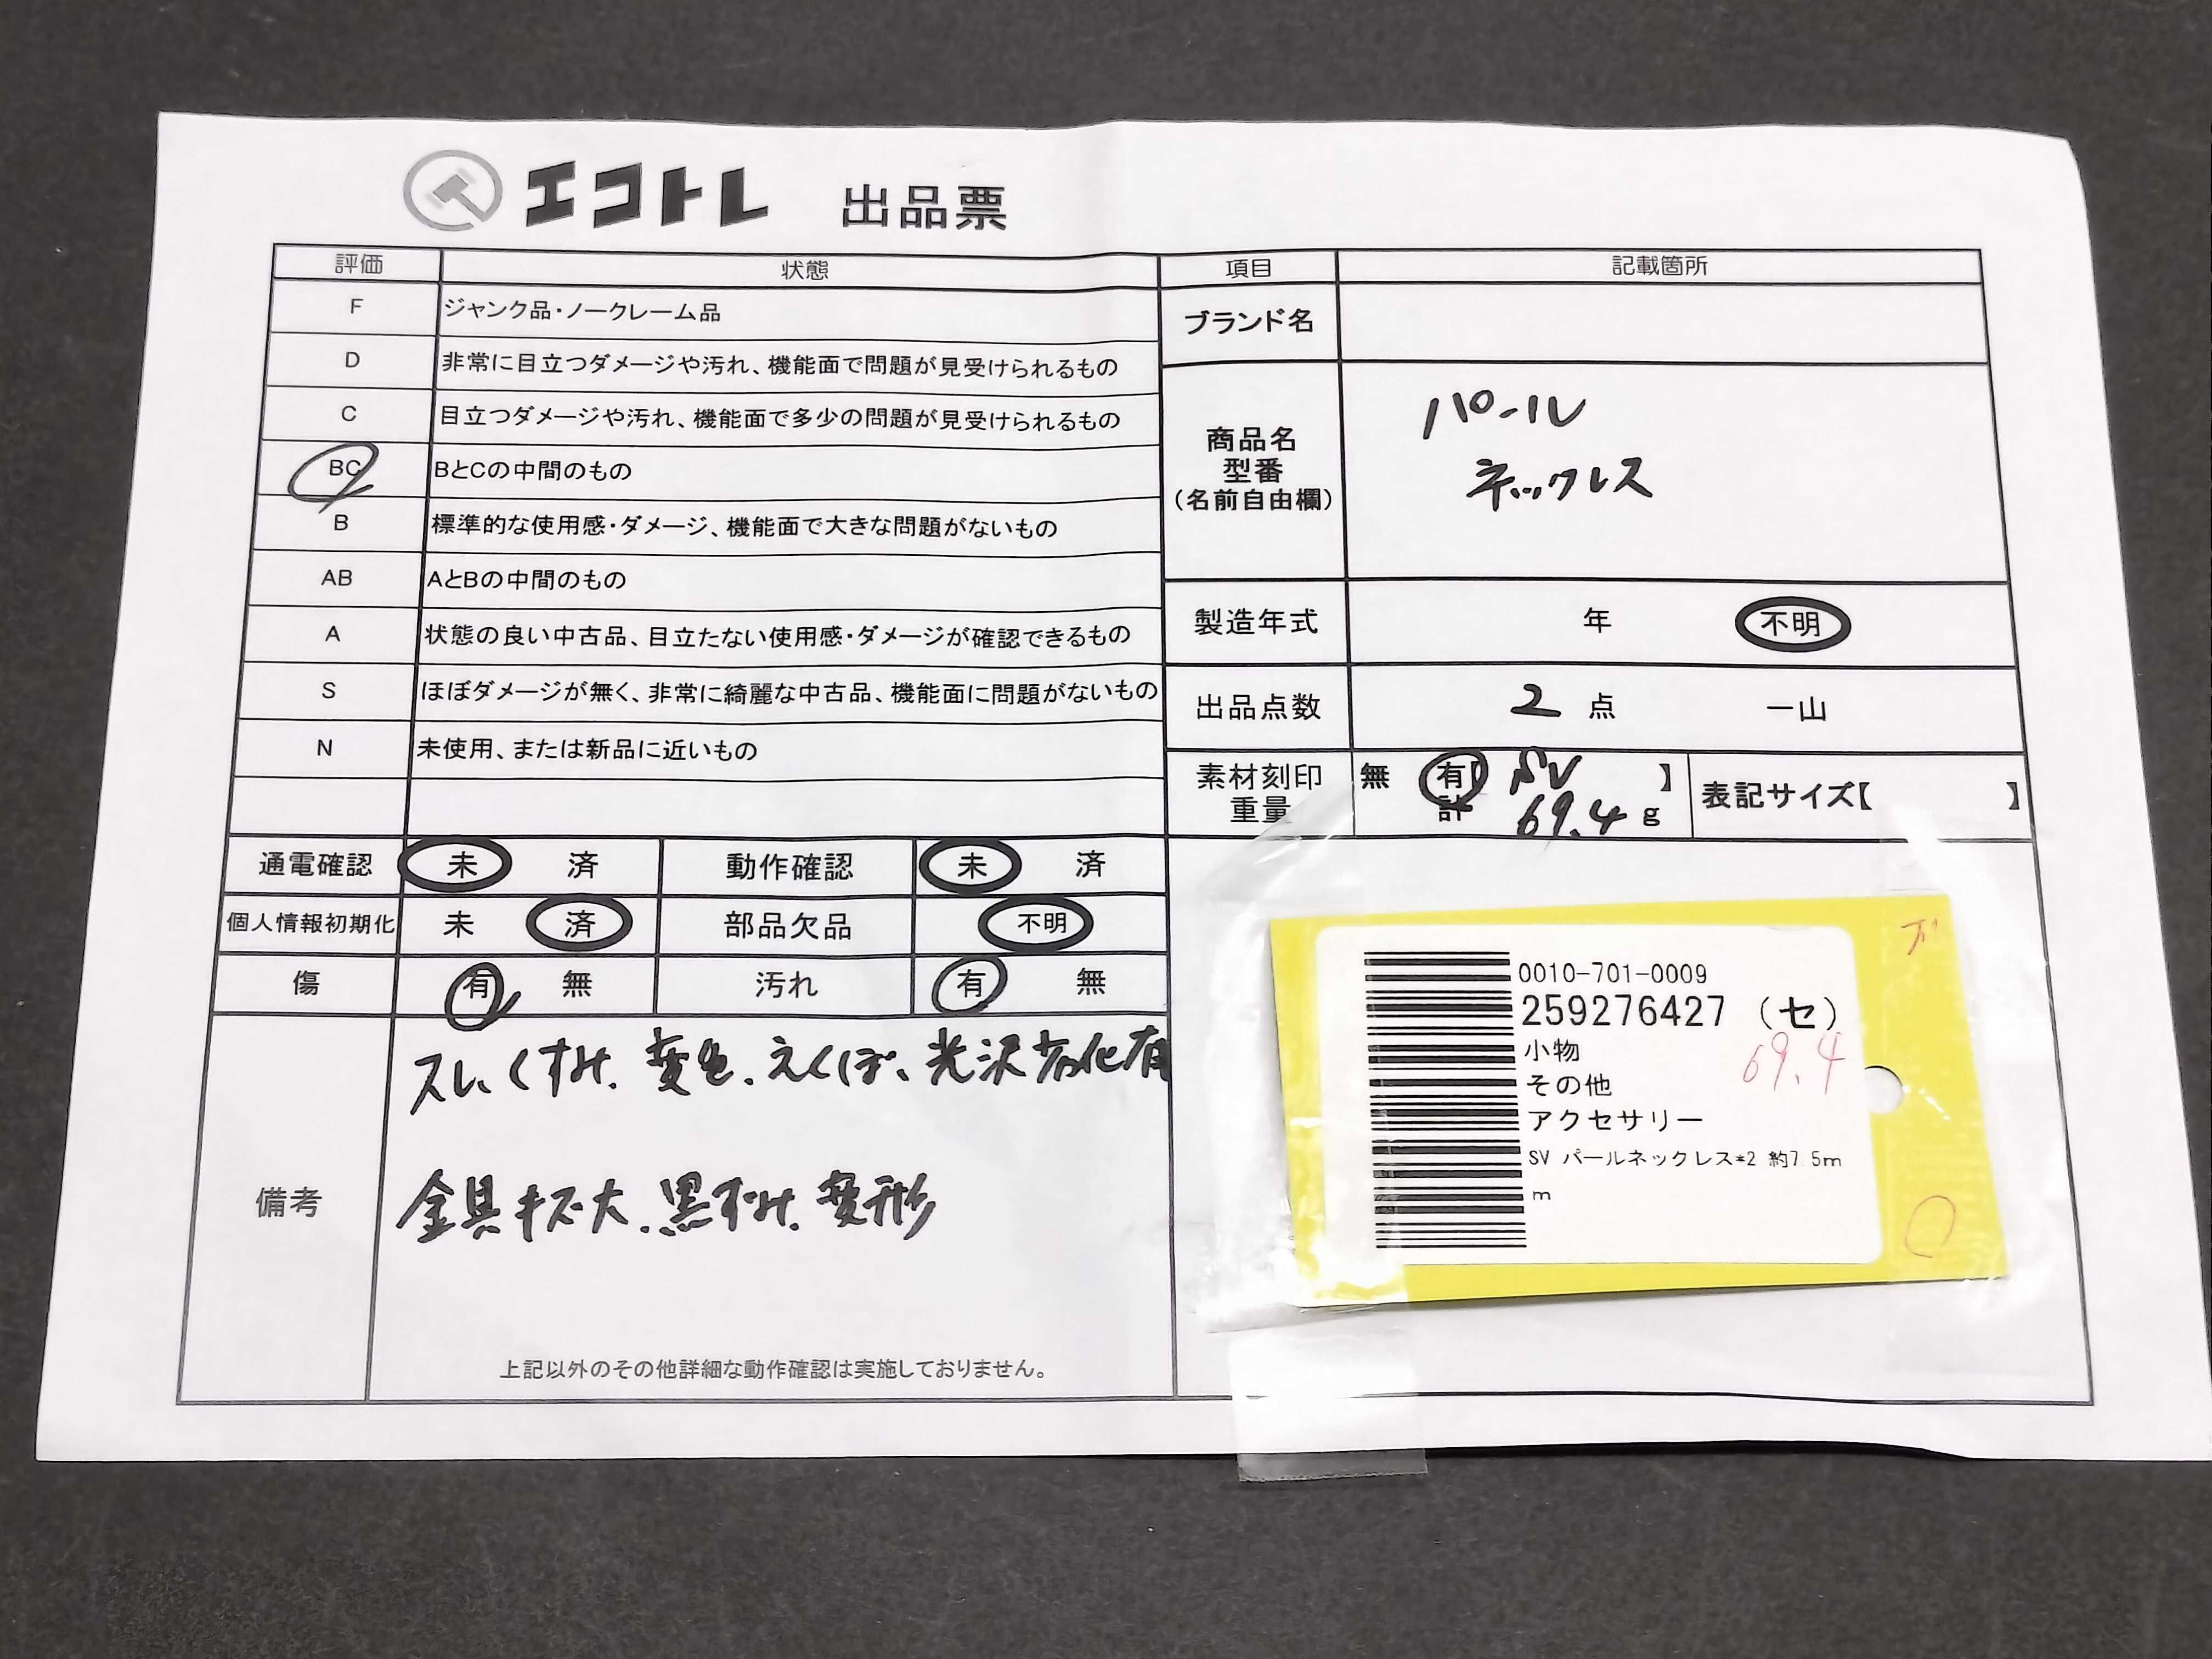 エコトレ 出品票
評価 状態
F ジャンク品・ノークレーム品
D 非常に目立つダメージや汚れ、機能面で問題が見受けられるもの
C 目立つダメージや汚れ、機能面で多少の問題が見受けられるもの
BC BとCの中間のもの
B 標準的な使用感・ダメージ、機能面で大きな問題がないもの
AB AとBの中間のもの
A 状態の良い中古品、目立たない使用感・ダメージが確認できるもの
S ほぼダメージが無く、非常に綺麗な中古品、機能面に問題がないもの
N 未使用、または新品に近いもの
項目 記載箇所
ブランド名
商品名
型番
(名前自由欄)
パール
ネックレス
製造年式 年 不明
出品点数 2 点 一山
素材刻印
重量
無 有【 SV 】
計 69.4 g
表記サイズ【 】
通電確認 未 済 動作確認 未 済
個人情報初期化 未 済 部品欠品 不明
傷 有 無 汚れ 有 無
備考
スレ、くすみ、変色、えくぼ、光沢劣化有
金具キズ大、黒ずみ、変形
上記以外のその他詳細な動作確認は実施しておりません。
0010-701-0009
259276427 (セ)
小物
その他
アクセサリー
SV パールネックレス*2 約7.5m
m
69.4